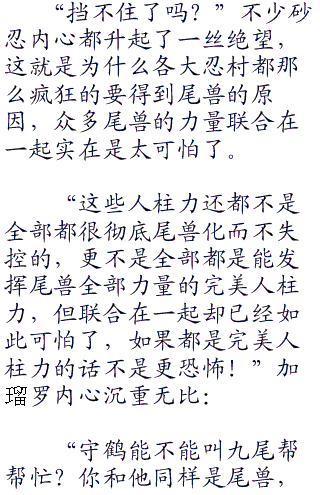 “挡不住了吗？”不少砂
忍内心都升起了一丝绝望，
这就是为什么各大忍村都那
么疯狂的要得到尾兽的原
因，众多尾兽的力量联合在
一起实在是太可怕了。
“这些人柱力还都不是
全部都很彻底尾兽化而不失
控的，更不是全部都是能发
挥尾兽全部力量的完美人柱
力，但联合在一起却已经如
此可怕了，如果都是完美人
柱力的话不是更恐怖！”加
瑠罗内心沉重无比：
“守鹤能不能叫九尾帮
帮忙？你和他同样是尾兽，